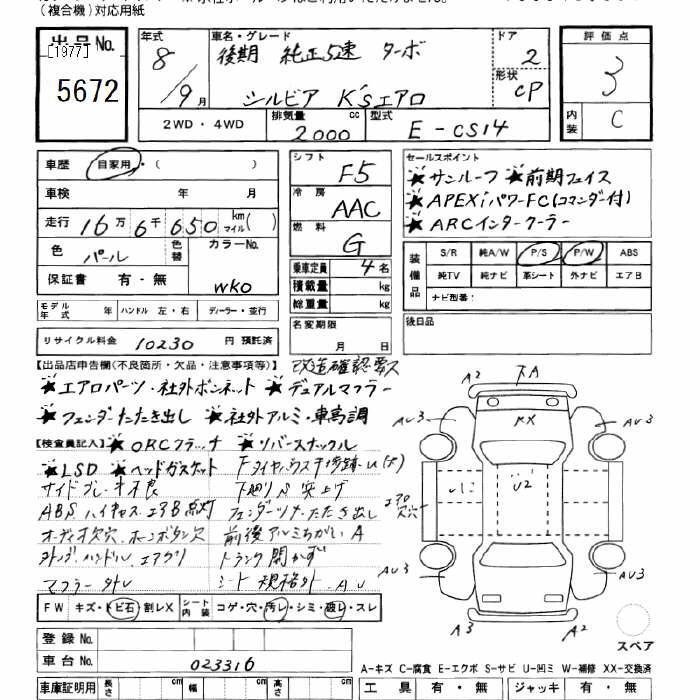 (複合機)対応用紙
出品No. [1977] 5672
年式 8/9月
車名・グレード 後期 純正5速 ターボ
シルビア K'sエアロ
ドア 2
形状 CP
評価点 3
内装 C
2WD・4WD
排気量 2000 cc
型式 E-CS14
車歴 自家用・( )
車検 年 月
走行 16万6千650 km マイル( )
色 パール 色替 カラーNo. WK0
保証書 有・無
シフト F5
冷房 AAC
燃料 G
乗車定員 4名
積載量 kg
総重量 kg
セールスポイント
★サンルーフ ★前期フェイス
★APEXiパワーFC(コマンダー付)
★ARCインタークーラー
装備品 S/R 純A/W P/S P/W ABS
純TV 純ナビ 革シート 外ナビ エアB
ナビ型番:
モデル年式 年 ハンドル 左・右 ディーラー・並行
名変期限 月 日
後日品
リサイクル料金 10230 円 預託済
【出品店申告欄(不良箇所・欠品・注意事項等)】 改造確認要ス
★エアロパーツ・社外ボンネット ★デュアルマフラー
★フェンダーたたき出し ★社外アルミ・車高調
【検査員記入】★ORCクラッチ ★リバースナックル
★LSD ★ヘッドガスケット
サイドブレーキ不良 下廻りS 突上げ
ABS ハイキャス エアB点灯 フェンダーツメたたき出し
オーディオ欠穴 ホーンボタン欠 前後アルミちがい A
外ナビ ハンドル エアクリ トランク開かず
マフラー外レ シート規格外 AU
FW キズ・トビ石・割レX シート内装 コゲ・穴・汚レ・シミ・破レ・スレ
A2 下A
AU3 AU3
UX
U2
エアロ欠穴
AU3 AU3
A3 A2
スペア
登録No.
車台No. 023316
A-キズ C-腐食 E-エクボ S-サビ U-凹ミ W-補修 XX-交換済
車庫証明用 長さ cm 幅 cm 高さ cm
工具 有・無 ジャッキ 有・無